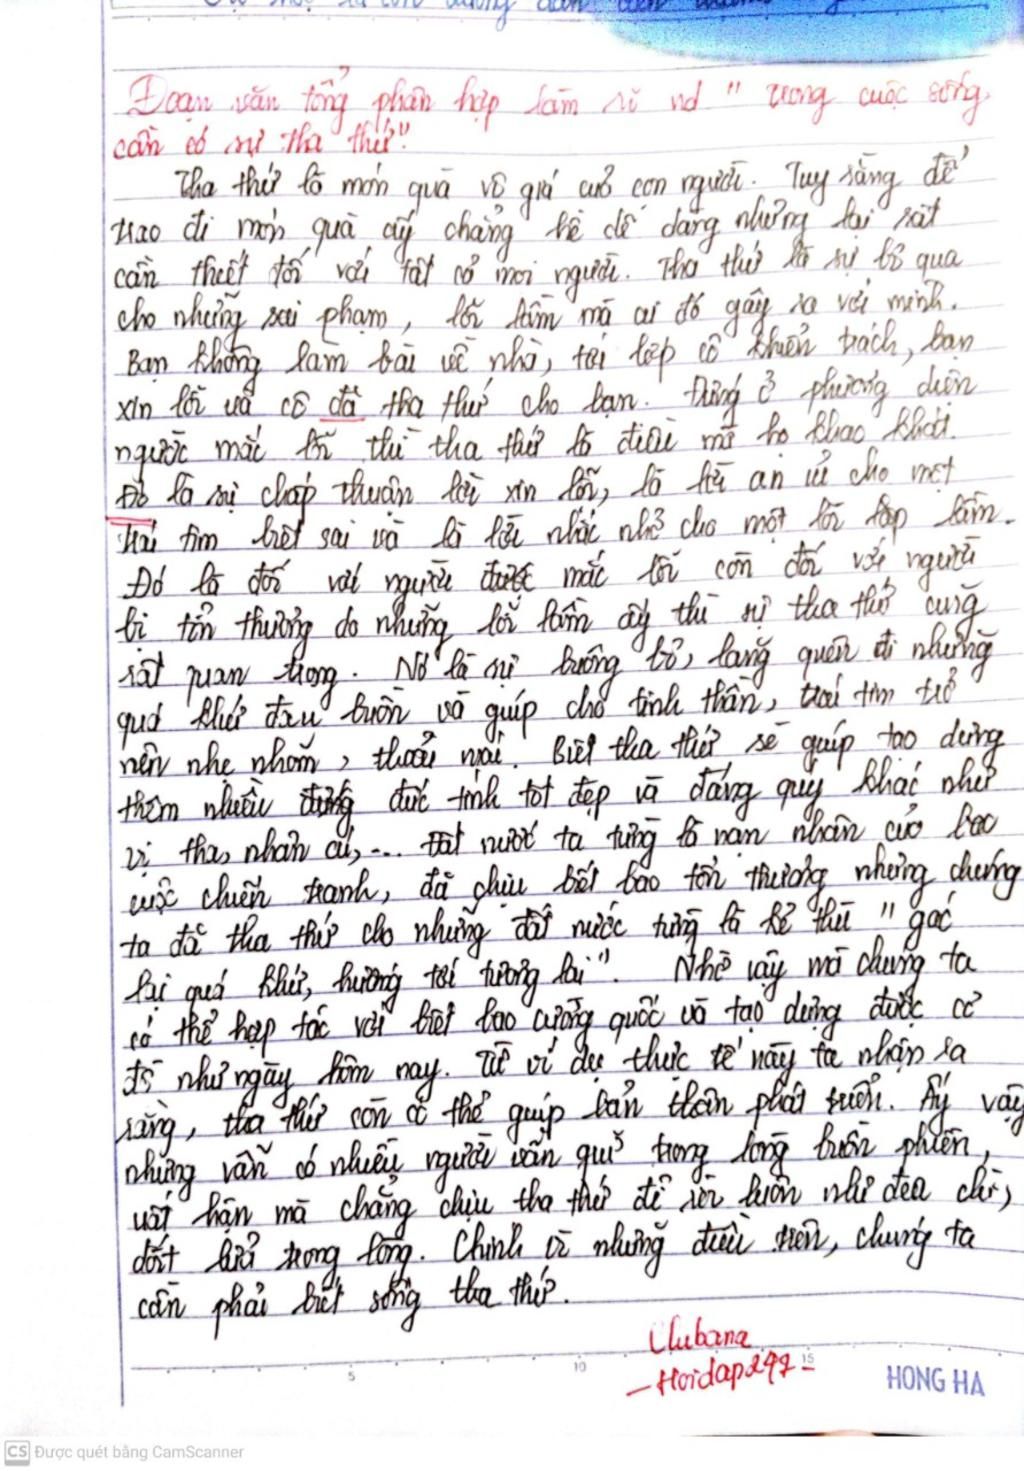 Đoạn văn tổng phân hợp làm rõ nd " trong cuộc sống
cần có sự tha thứ".
Tha thứ là món quà vô giá của con người. Tuy rằng để
trao đi món quà ấy chẳng hề dễ dàng nhưng lại rất
cần thiết đối với tất cả mọi người. Tha thứ là sự bỏ qua
cho những sai phạm, lỗi lầm mà ai đó gây ra với mình.
Bạn không làm bài về nhà, tới lớp cô khiển trách, bạn
xin lỗi và cô đã tha thứ cho bạn. Đứng ở phương diện
người mắc lỗi thì tha thứ là điều mà họ khao khát.
Đó là sự chấp thuận lời xin lỗi, là lời an ủi cho một
trái tim biết sai và là lời nhắc nhở cho một lỗi lầm.
Đó là đối với người được mắc lỗi còn đối với người
bị tổn thương do những lỗi lầm ấy thì sự tha thứ cũng
rất quan trọng. Nó là sự buông bỏ, lãng quên đi những
quá khứ đau buồn và giúp cho tinh thần, trái tim trở
nên nhẹ nhõm, thoải mái. Biết tha thứ sẽ giúp tạo dựng
thêm nhiều đức tính tốt đẹp và đáng quý khác như
vị tha, nhân ái,... Đất nước ta từng là nạn nhân của bao
cuộc chiến tranh, đã chịu biết bao tổn thương nhưng chúng
ta đã tha thứ cho những đất nước từng là kẻ thù " gác
lại quá khứ, hướng tới tương lai". Nhờ vậy mà chúng ta
có thể hợp tác với biết bao cường quốc và tạo dựng được cơ
đồ như ngày hôm nay. Từ ví dụ thực tế này ta nhận ra
rằng, tha thứ còn có thể giúp bản thân phát triển. Ấy vậy
nhưng vẫn có nhiều người vẫn giữ trong lòng buồn phiền,
uất hận mà chẳng chịu tha thứ để rồi luôn như đeo chì,
đốt lửa trong lòng. Chính vì những điều trên, chúng ta
cần phải biết sống tha thứ.
Clubana
- Hoidap247 -
5 10 15
HONG HA
CS Được quét bằng CamScanner